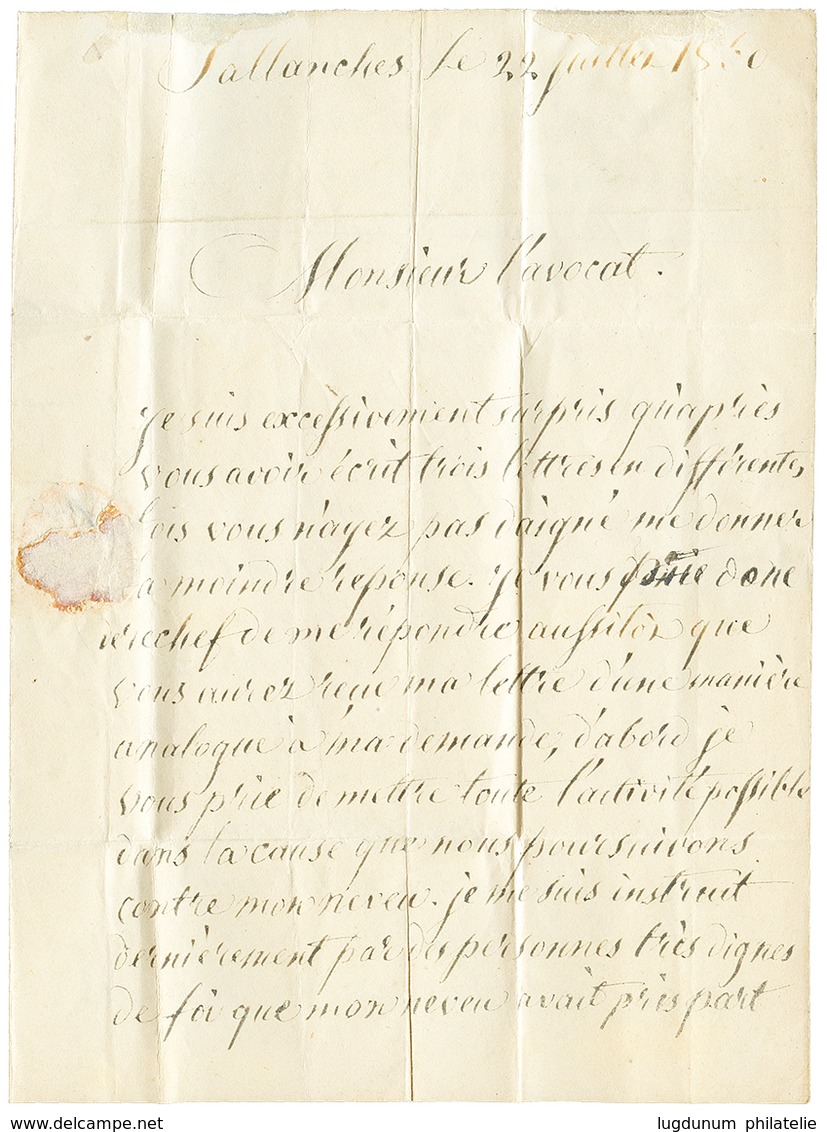 Sallanches le 22 juillet 1850
Monsieur l'avocat.
Je suis excessivement surpris qu'après
vous avoir écrit trois lettres en différentes
fois vous n'ayez pas daigné me donner
la moindre reponse. Je vous prie donc
derechef de me répondre aussitôt que
vous aurez reçue ma lettre d'une manière
analogue à ma demande; d'abord je
vous prie de mettre toute l'activité possible
dans la cause que nous poursuivons
contre mon neveu. je me suis instruit
dernièrement par des personnes très dignes
de foi que mon neveu avait pris part
delcampe.net
lugdunum philatelie